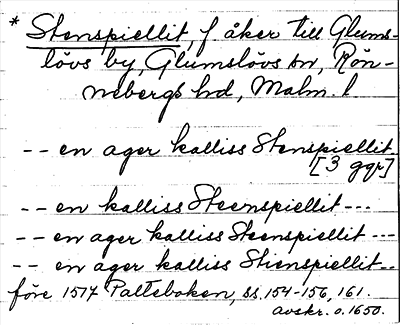 * Stenspiellit, f åker till Glums-
lövs by, Glumslövs sn, Rön-
nebergs hd, Malm. l
-- en ager kalliss Stenspiellit
[3 ggr]
-- en kalliss Steenspiellit ---
-- en ager kalliss Steenspiellit ---
-- en ager kalliss Stienspiellit --
före 1517 Palteboken, ss. 154-156, 161.
avskr. o. 1650.